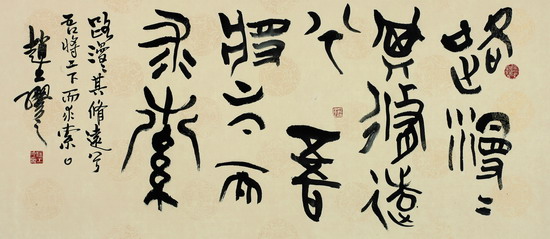 路漫〻
其脩遠
兮吾
將上下而
求索
路漫〻其脩遠兮
吾將上下而求索
趙